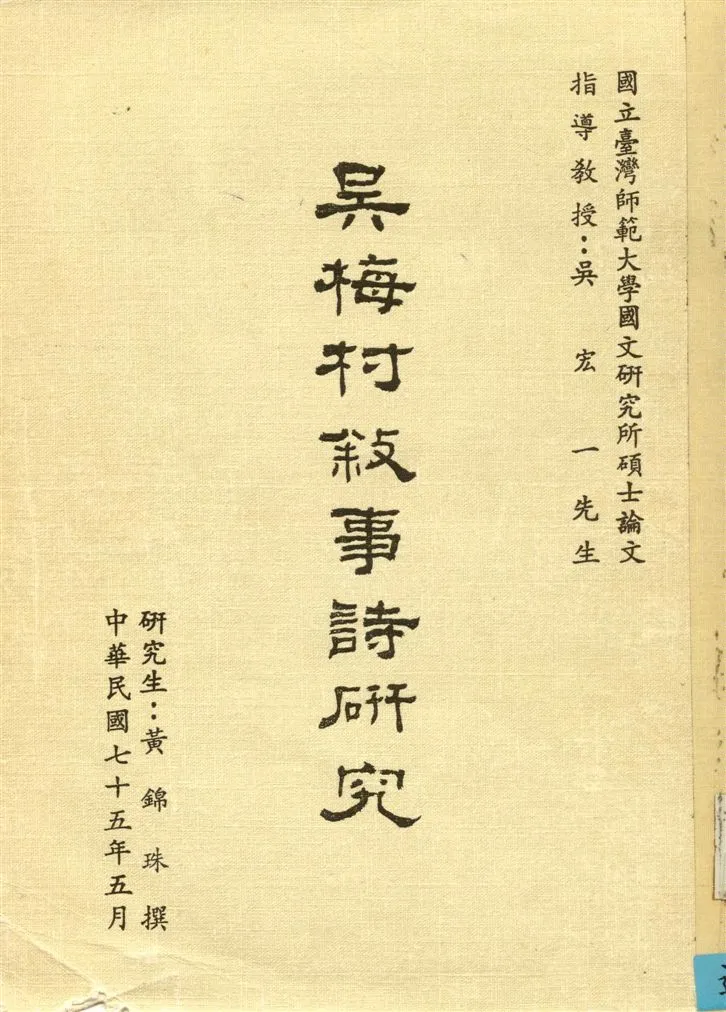 國立臺灣師範大學國文研究所碩士論文
指導教授：吳宏一先生
吳梅村敘事詩研究
研究生：黃錦珠撰
中華民國七十五年五月